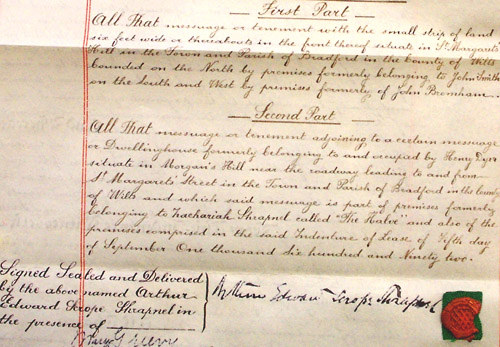 First Part
All That messuage or tenement with the small strip of land
six feet wide or thereabouts in the front thereof situate in St. Margaret's
Hill in the Town and Parish of Bradford in the County of Wilts
bounded on the North by premises formerly belonging to John Smith
on the South and West by premises formerly of John Bromham
Second Part
All That messuage or tenement adjoining to a certain messuage
or Dwellinghouse formerly belonging to and occupied by Henry Dyer
situate in Morgan's Hill near the roadway leading to and from
St. Margarets' Street in the Town and Parish of Bradford in the County
of Wilts and which said messuage is part of premises formerly
belonging to Zachariah Shrapnel called "The Halve" and also of the
premises comprised in the said Indenture of Lease of Fifth day
of September One thousand Six hundred and Ninety two.
Signed Sealed and Delivered
by the above named Arthur
Edward Scrope Shrapnel in
the presence of
Arthur Edward Scrope Shrapnel